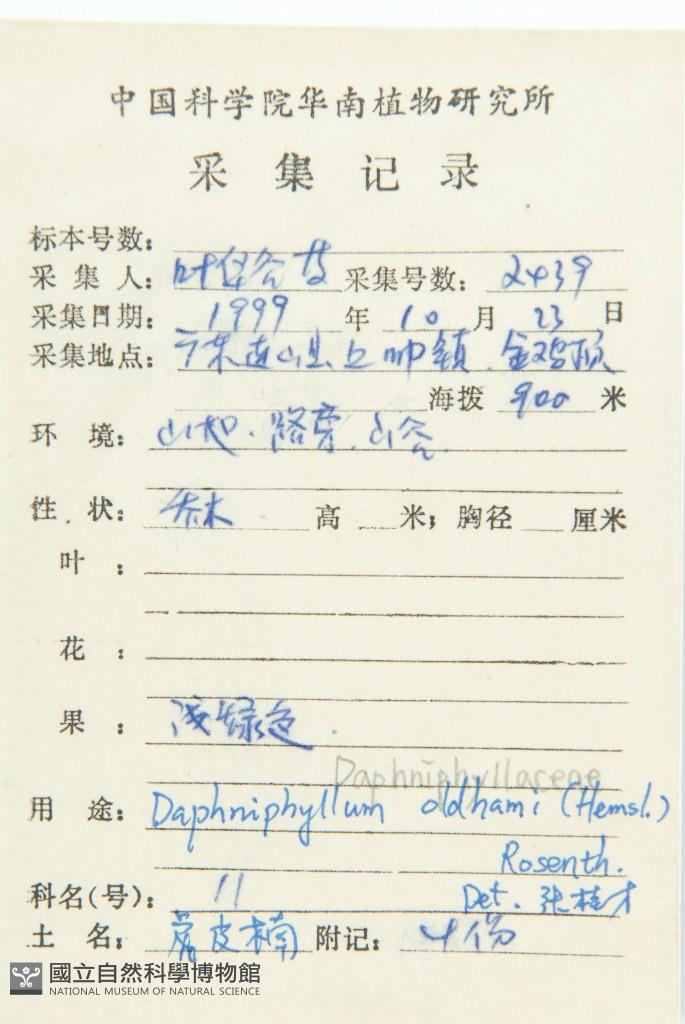 中国科学院华南植物研究所
采集记录
标本号数:
采集人: 叶华谷等 采集号数: 2439
采集日期: 1999 年 10 月 23 日
采集地点: 广东连山县上帅镇.金鸡顶
海拨 900 米
环境: 山地.路旁.山谷.
性状: 乔木 高 米; 胸径 厘米
叶:
花:
果: 浅绿色.
Daphniphyllaceae
用途: Daphniphyllum oldhami (Hemsl.)
Rosenth.
科名(号): 11 Det. 张桂才
土名: 虎皮楠 附记: 4份
國立自然科學博物館
NATIONAL MUSEUM OF NATURAL SCIENCE